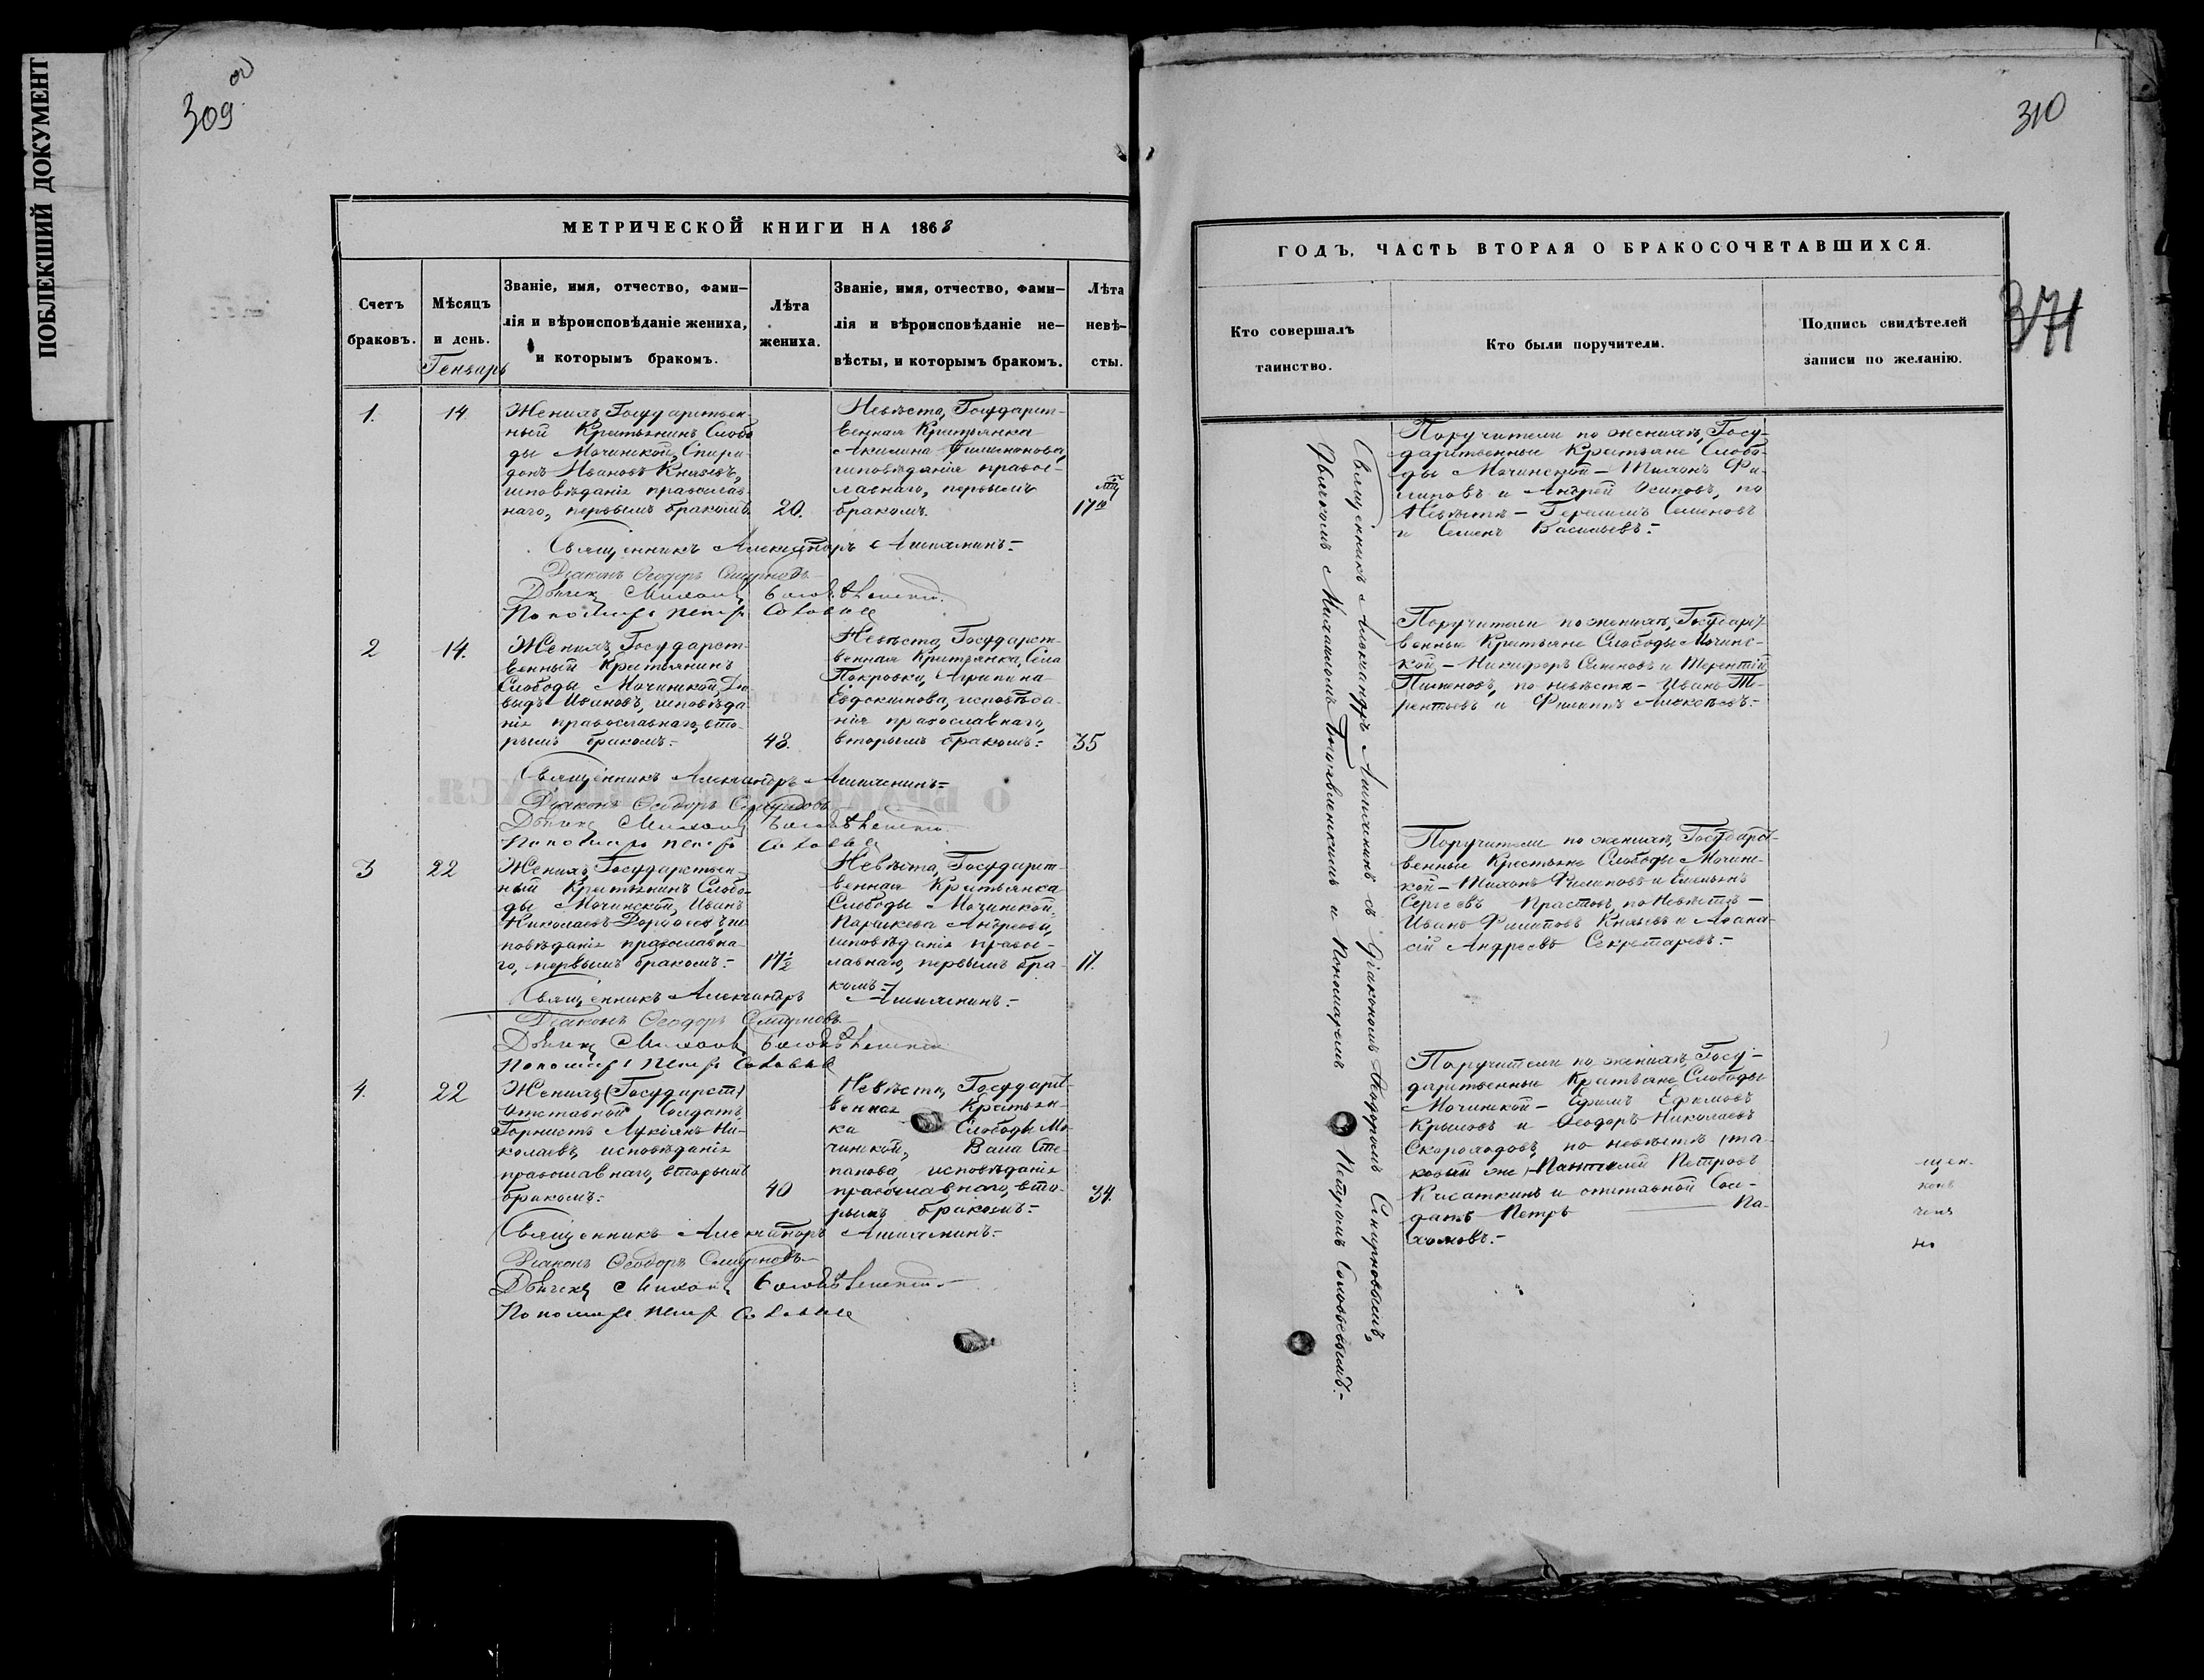 ПОБЛЕКШИЙ ДОКУМЕНТ
309 об
МЕТРИЧЕСКОЙ КНИГИ НА 1868
Счетъ
браковъ.
Мѣсяцъ
и день.
Генварь
Званіе, имя, отчество, фами-
лія и вѣроисповѣданіе жениха,
и которымъ бракомъ.
Лѣта
жениха.
Званіе, имя, отчество, фами-
лія и вѣроисповѣданіе не-
вѣсты, и которымъ бракомъ.
Лѣта
невѣ-
сты.
1.
14
Женихъ, Государствен-
ный Крестьянинъ Слобо
ды Мочинской, Спири-
донъ Ивановъ Князевъ,
исповѣданія православ-
наго, первымъ бракомъ.
20.
Невѣста, Государст-
венная Крестьянка
Акилина Филимонова,
исповѣданія правос-
лавнаго, первымъ
бракомъ.
17
Священникъ Александръ Ашихминъ.-
Діаконъ Ѳеодоръ Смирновъ
Дьячекъ Михаилъ
Пономарь Петръ Соловьевъ
2
14.
Женихъ, Государст-
венный Крестьянинъ
Слободы Мочинской, Да
выдъ Ивановъ, исповѣда
нія православнаго, вто-
рымъ бракомъ.-
48.
Невѣста, Государст-
венная Крестьянка, Села
Покровки, Агрипина
Евдокимова, исповѣда-
нія православнаго,
вторымъ бракомъ.-
35
Священникъ Александръ Ашихминъ=
Діаконъ Ѳеодоръ Смирновъ
Дьячекъ Михаилъ
Пономарь Петръ Соловьевъ
3
22
Женихъ, Государствен-
ный Крестьянинъ Слобо-
ды Мочинской, Иванъ
Николаевъ ис
повѣданія православна-
го, первымъ бракомъ.-
17½
Невѣста, Государст-
венная Крестьянка
Слободы Мочинской,
Параскева Андреева,
исповѣданія правос-
лавнаго, первымъ бра-
комъ.-
17.
Священникъ Александръ Ашихминъ.-
Діаконъ Ѳеодоръ Смирновъ
Дьячекъ Михаилъ
Пономарь Петръ Соловьевъ
4.
22
Женихъ, (Государст)
отставной Солдатъ
Горнистъ Лукіянъ Ни-
колаевъ, исповѣданія
православнаго, вторымъ
бракомъ.-
40
Невѣста, Государст-
венная Крестьян-
ка Слободы Мо-
чинской, Васа Сте-
панова, исповѣданія
православнаго, вто-
рымъ бракомъ.-
34.
Священникъ Александръ Ашихминъ.-
Діаконъ Ѳеодоръ Смирновъ
Дьячекъ Михаилъ
Пономарь Петръ Соловьевъ
310
371
ГОДЪ, ЧАСТЬ ВТОРАЯ О БРАКОСОЧЕТАВШИХСЯ.
Кто совершалъ
таинство.
Кто были поручители.
Подпись свидѣтелей
записи по желанію.
Священникъ Александръ Ашихминъ съ Діакономъ Ѳеодоромъ Смирновымъ,
Дьячкомъ Михаиломъ и Пономаремъ Петромъ Соловьевымъ.-
Поручители по женихѣ, Госу-
дарственные Крестьяне Слобо-
ды Мочинской - Тихонъ Фи-
липовъ и Андрей Осиповъ, по
Невѣстѣ - Герасимъ Семеновъ
и Семенъ Васильевъ.-
Поручители по женихѣ, Государст-
венные Крестьяне Слободы Мочинс-
кой, - Никифоръ Семеновъ и Терентій
Пименовъ, по невѣстѣ - Иванъ Те-
рентьевъ и Филиппъ Алексѣевъ.-
Поручители по женихѣ, Государст-
венные Крестьяне Слободы Мочинс-
кой - Тихонъ Филиповъ и Емельянъ
Сергеевъ по Невѣстѣ -
Иванъ Филиповъ Князевъ и Афана-
сій Андреевъ Секретаревъ.-
Поручители по женихѣ, Госу-
дарственные Крестьяне Слободы
Мочинской - Ефимъ Ефимовъ
Крыловъ и Ѳеодоръ Николаевъ
Скороходовъ, по невѣстѣ (та-
ковый же) Пантелей Петровъ
Касаткинъ и отставной Сол-
датъ Петръ Па-
хомовъ.-